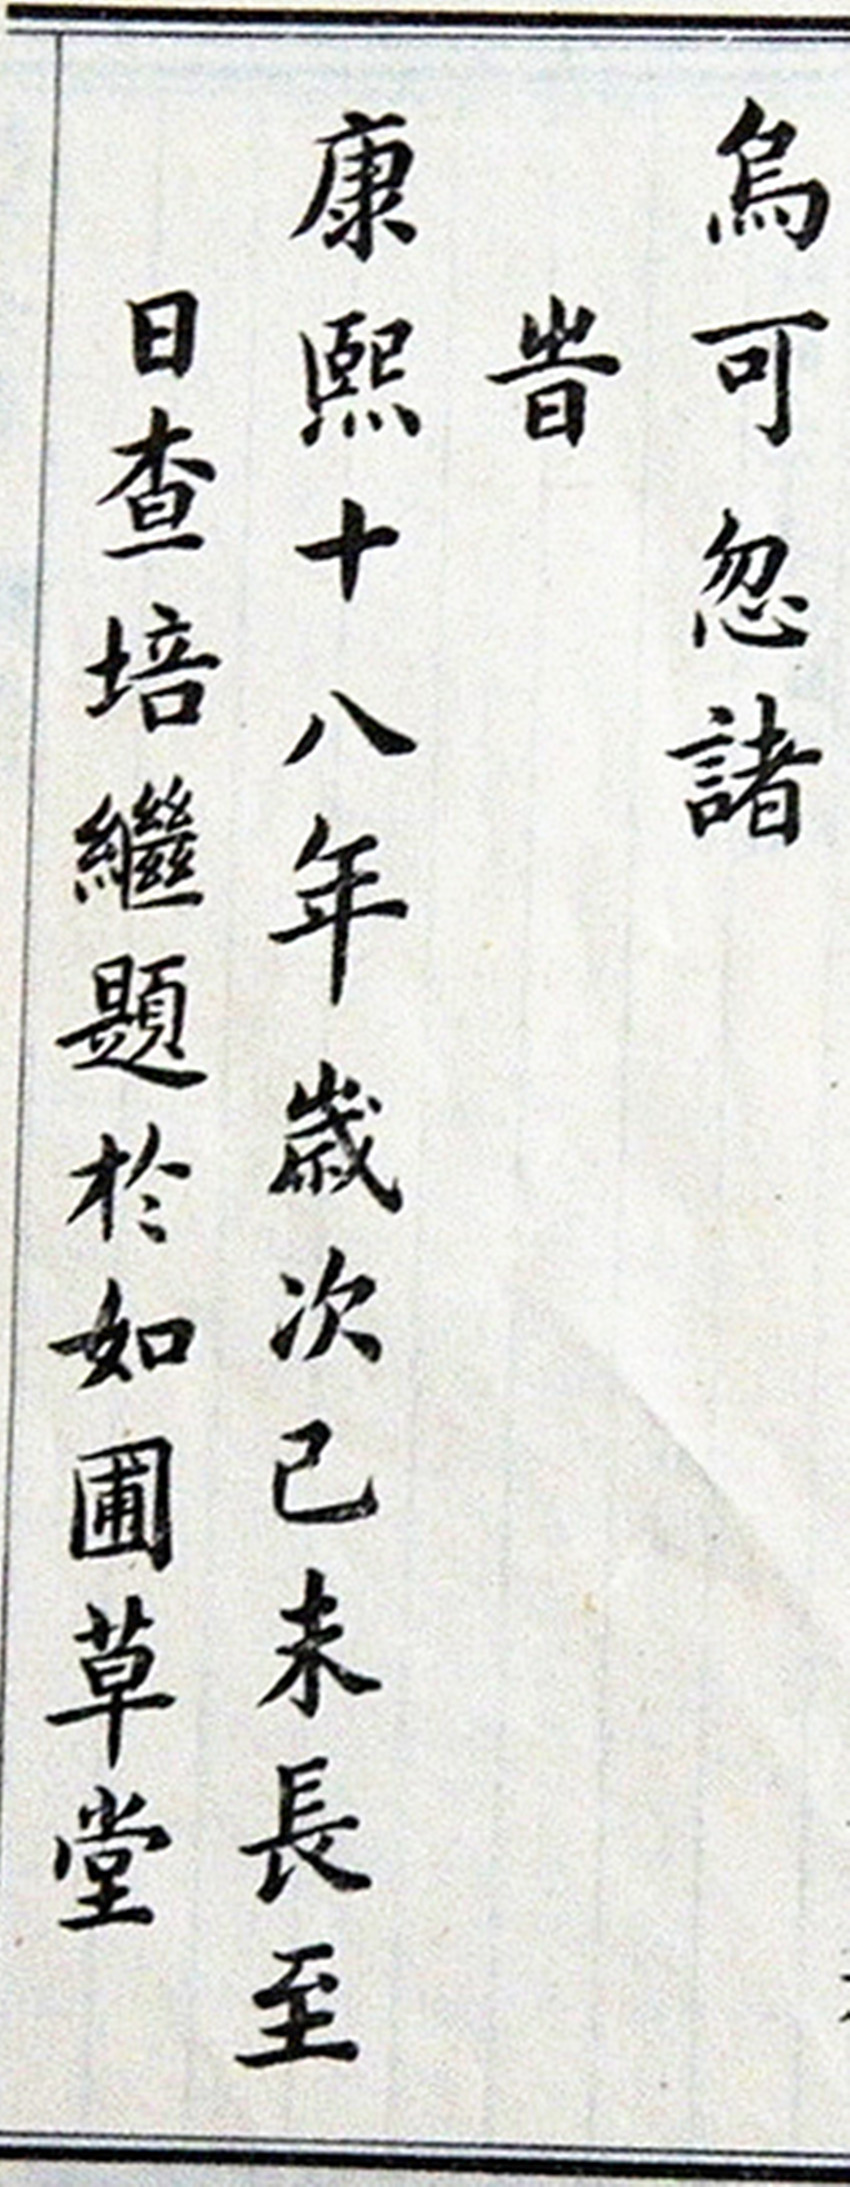 烏可忽諸
旹
康熙十八年歲次己未長至
日查培繼題於如圃草堂